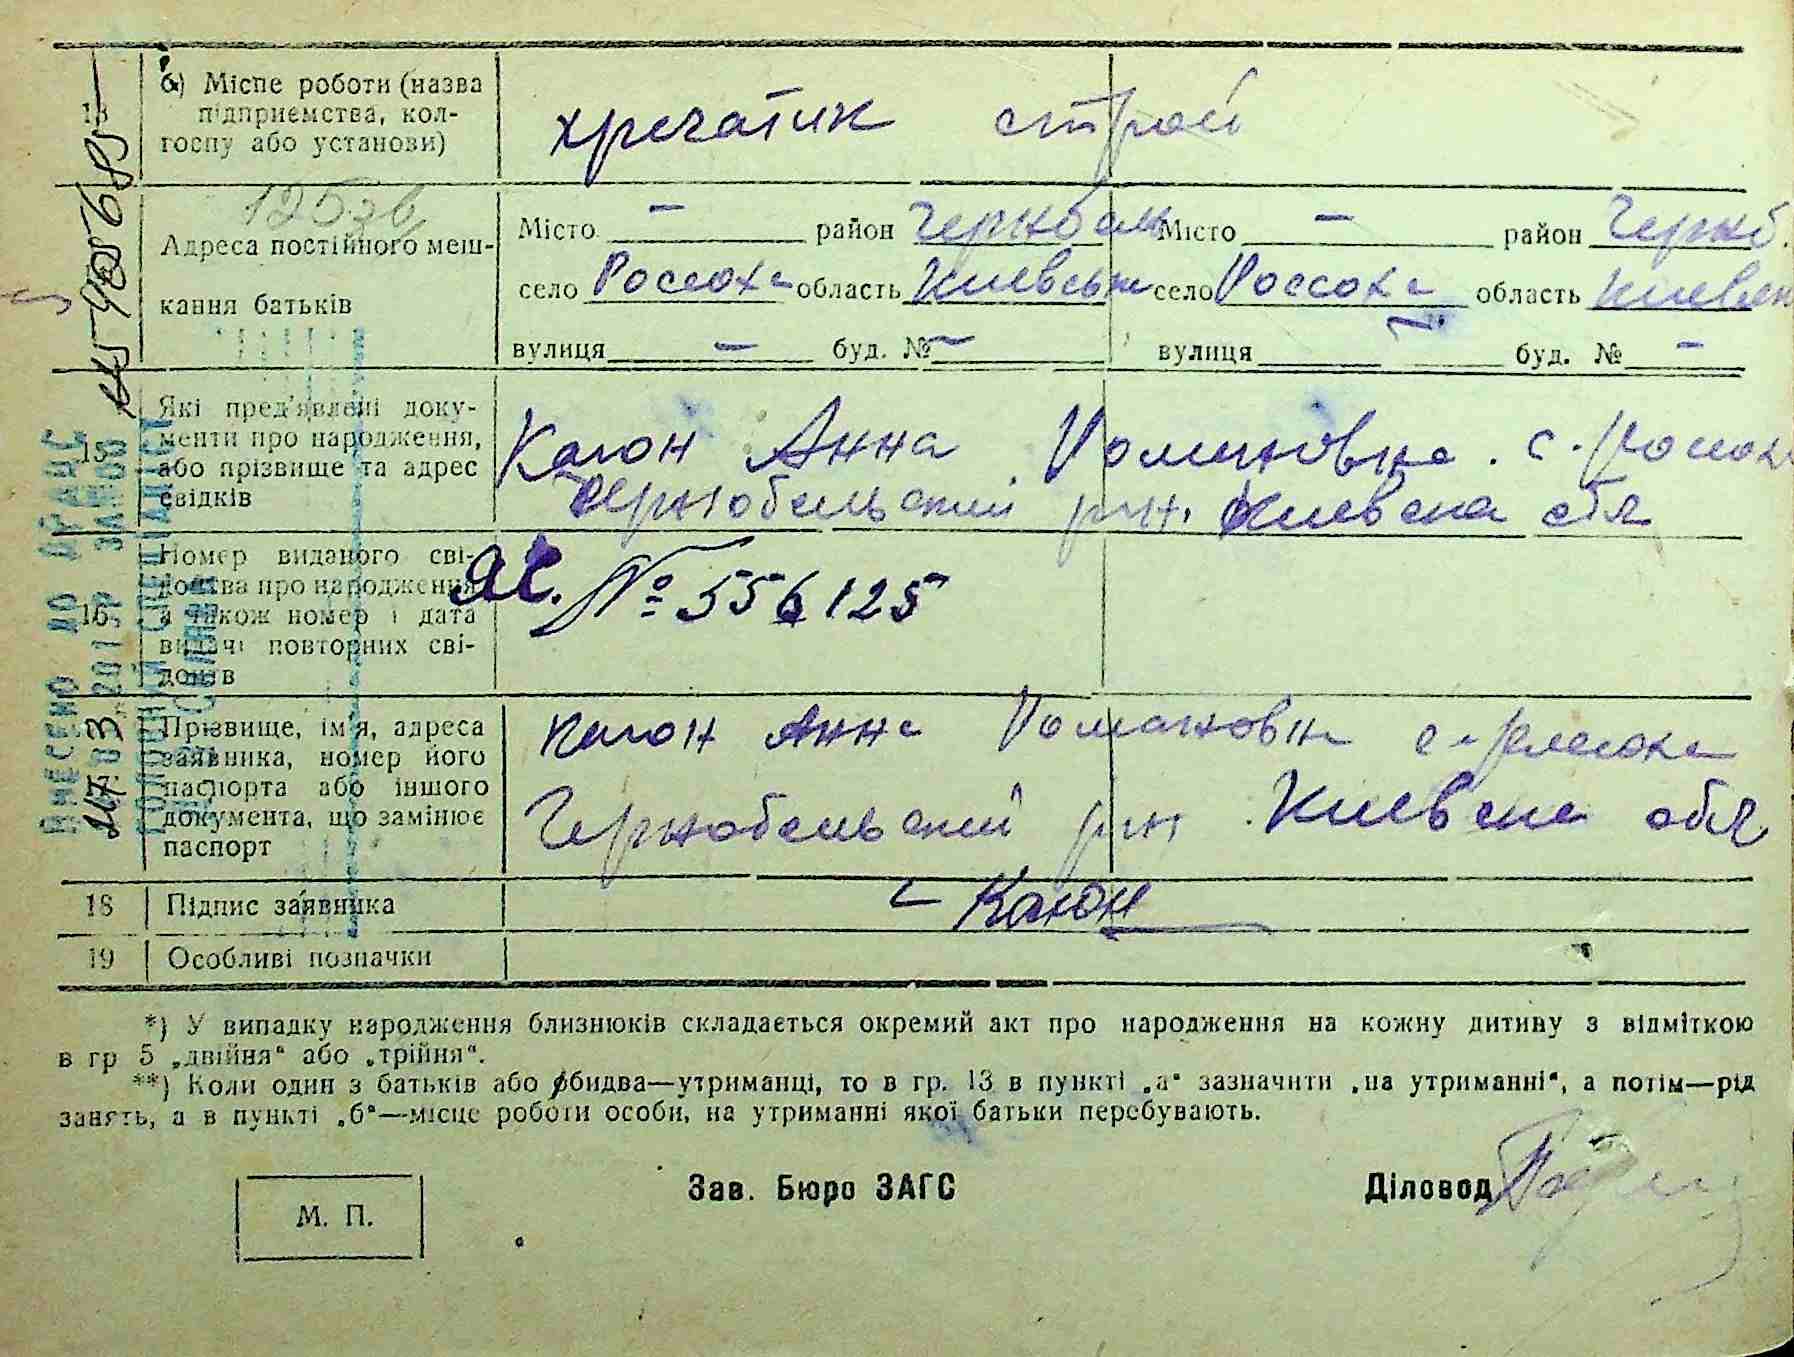 13 б) Місце роботи (назва
підприємства, кол-
госпу або установи)
хречатик строй
125 зв
Адреса постійного меш-
кання батьків
Місто — район Чернобель
село Россоха область Киевськ
вулиця — буд. № —
Місто — район Черноб.
село Россоха область Киевск
вулиця буд. № —
15 Які пред'явлені доку-
менти про народження,
або прізвище та адрес
свідків
Каюн Анна Романовна. с. Россоха
Чернобельский р-н. Киевска обл
16 Номер виданого сві-
доцтва про народження
а також номер і дата
видачі повторних сві-
доцтв
ЯС. № 556125
17 Прізвище, ім'я, адреса
заявника, номер його
паспорта або іншого
документа, що замінює
паспорт
Каюн Анна Романовна с-Россоха
Чернобельский р-н Киевска обл
18 Підпис заявника
Каюн
19 Особливі позначки
*) У випадку народження близнюків складається окремий акт про народження на кожну дитину з відміткою
в гр 5 „двійня“ або „трійня“.
**) Коли один з батьків або обидва—утриманці, то в гр. 13 в пункті „а“ зазначити „на утриманні“, а потім—рід
занять, а в пункті „б“—місце роботи особи, на утриманні якої батьки перебувають.
М. П.
Зав. Бюро ЗАГС
Діловод
ВНЕСЕНО ДО ДРАЦС
ГОЛОВНИЙ СПЕЦІАЛІСТ